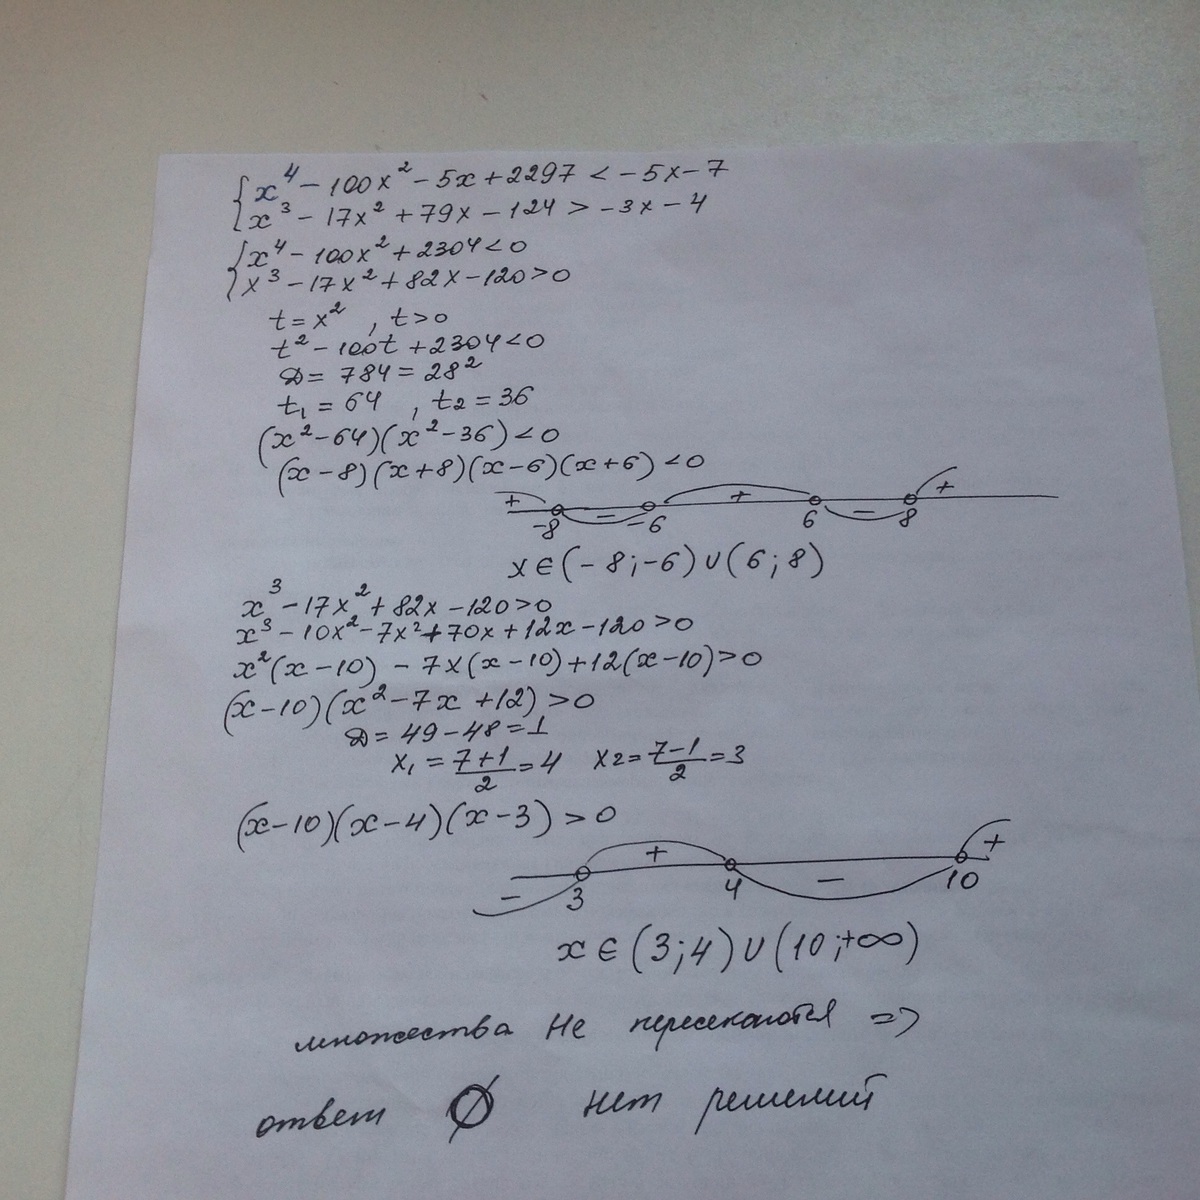 { x⁴ - 100x² - 5x + 2297 < -5x - 7
x³ - 17x² + 79x - 124 > -3x - 4
{ x⁴ - 100x² + 2304 < 0
x³ - 17x² + 82x - 120 > 0
t = x² , t > 0
t² - 100t + 2304 < 0
D = 784 = 28²
t₁ = 64 , t₂ = 36
(x² - 64)(x² - 36) < 0
(x - 8)(x + 8)(x - 6)(x + 6) < 0
+ - + - +
-8 -6 6 8
x ∈ (-8; -6) ∪ (6; 8)
x³ - 17x² + 82x - 120 > 0
x³ - 10x² - 7x² + 70x + 12x - 120 > 0
x²(x - 10) - 7x(x - 10) + 12(x - 10) > 0
(x - 10)(x² - 7x + 12) > 0
D = 49 - 48 = 1
x₁ = (7+1)/2 = 4 x₂ = (7-1)/2 = 3
(x - 10)(x - 4)(x - 3) > 0
- + - +
3 4 10
x ∈ (3; 4) ∪ (10; +∞)
множества не пересекаются =>
ответ Ø нет решений